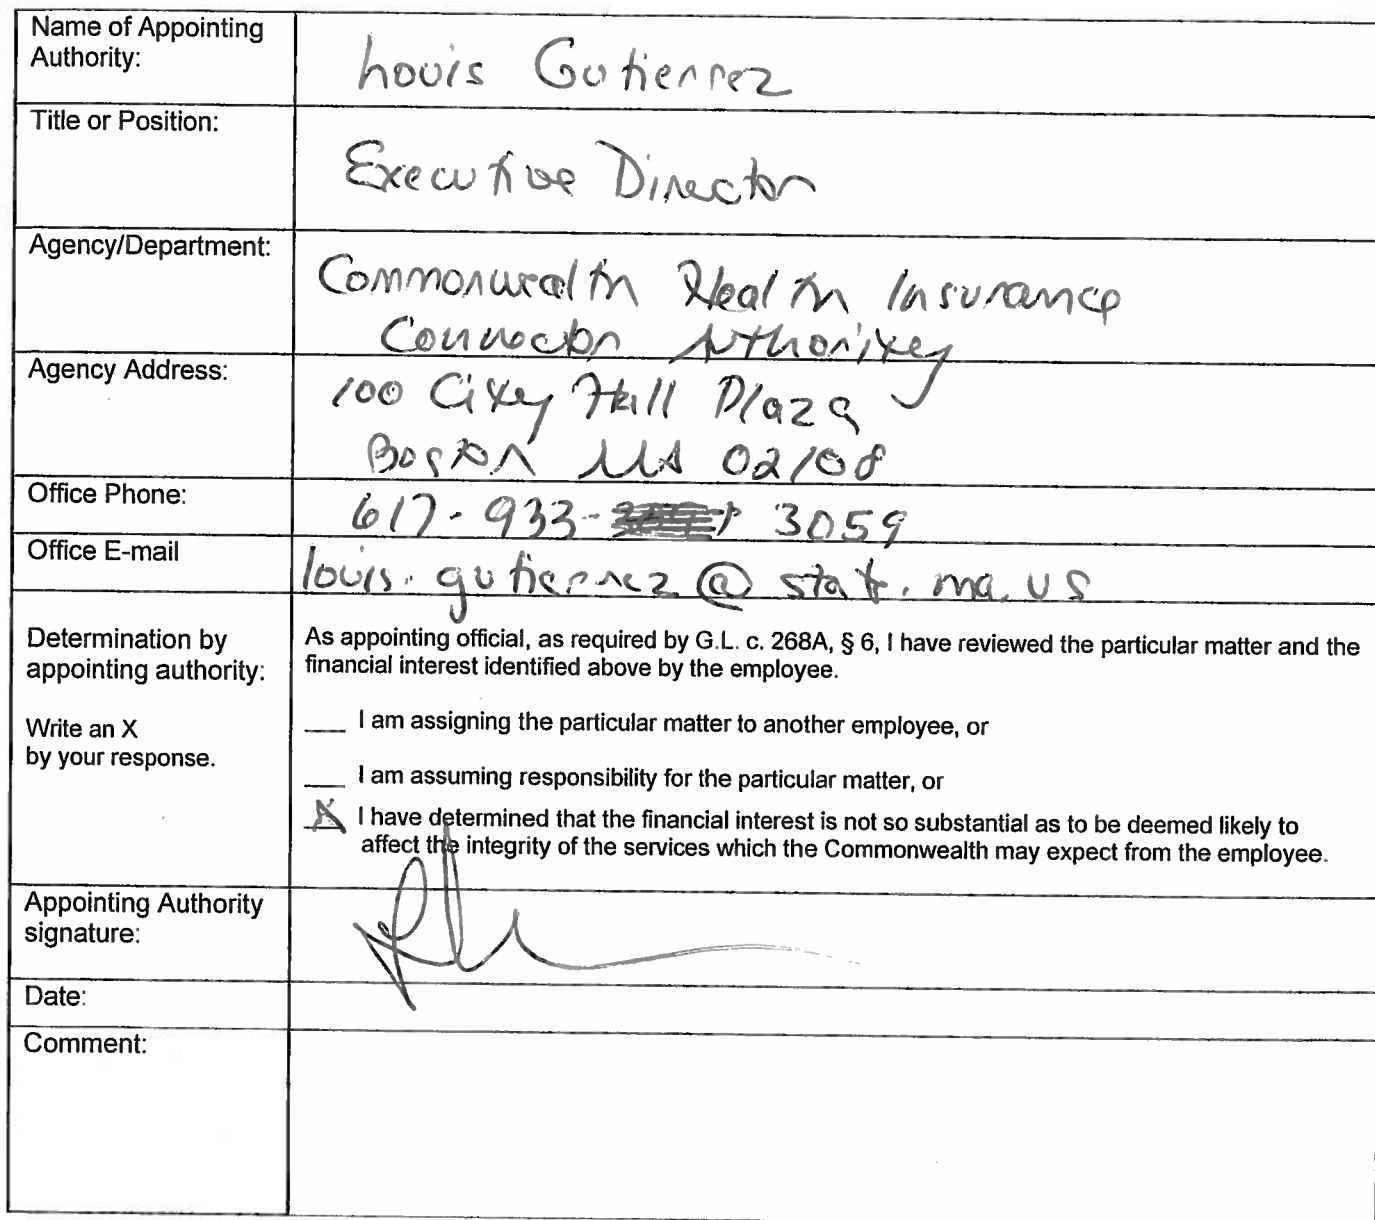 Name of Appointing
Authority:
Louis Gutierrez
Title or Position:
Executive Director
Agency/Department:
Commonwealth Health Insurance
Connector Authority
Agency Address:
100 City Hall Plaza
Boston MA 02108
Office Phone:
617-933- 3059
Office E-mail
louis.gutierrez@state.ma.us
Determination by
appointing authority:
Write an X
by your response.
As appointing official, as required by G.L. c. 268A, § 6, I have reviewed the particular matter and the
financial interest identified above by the employee.
___ I am assigning the particular matter to another employee, or
___ I am assuming responsibility for the particular matter, or
X I have determined that the financial interest is not so substantial as to be deemed likely to
affect the integrity of the services which the Commonwealth may expect from the employee.
Appointing Authority
signature:
Date:
Comment: